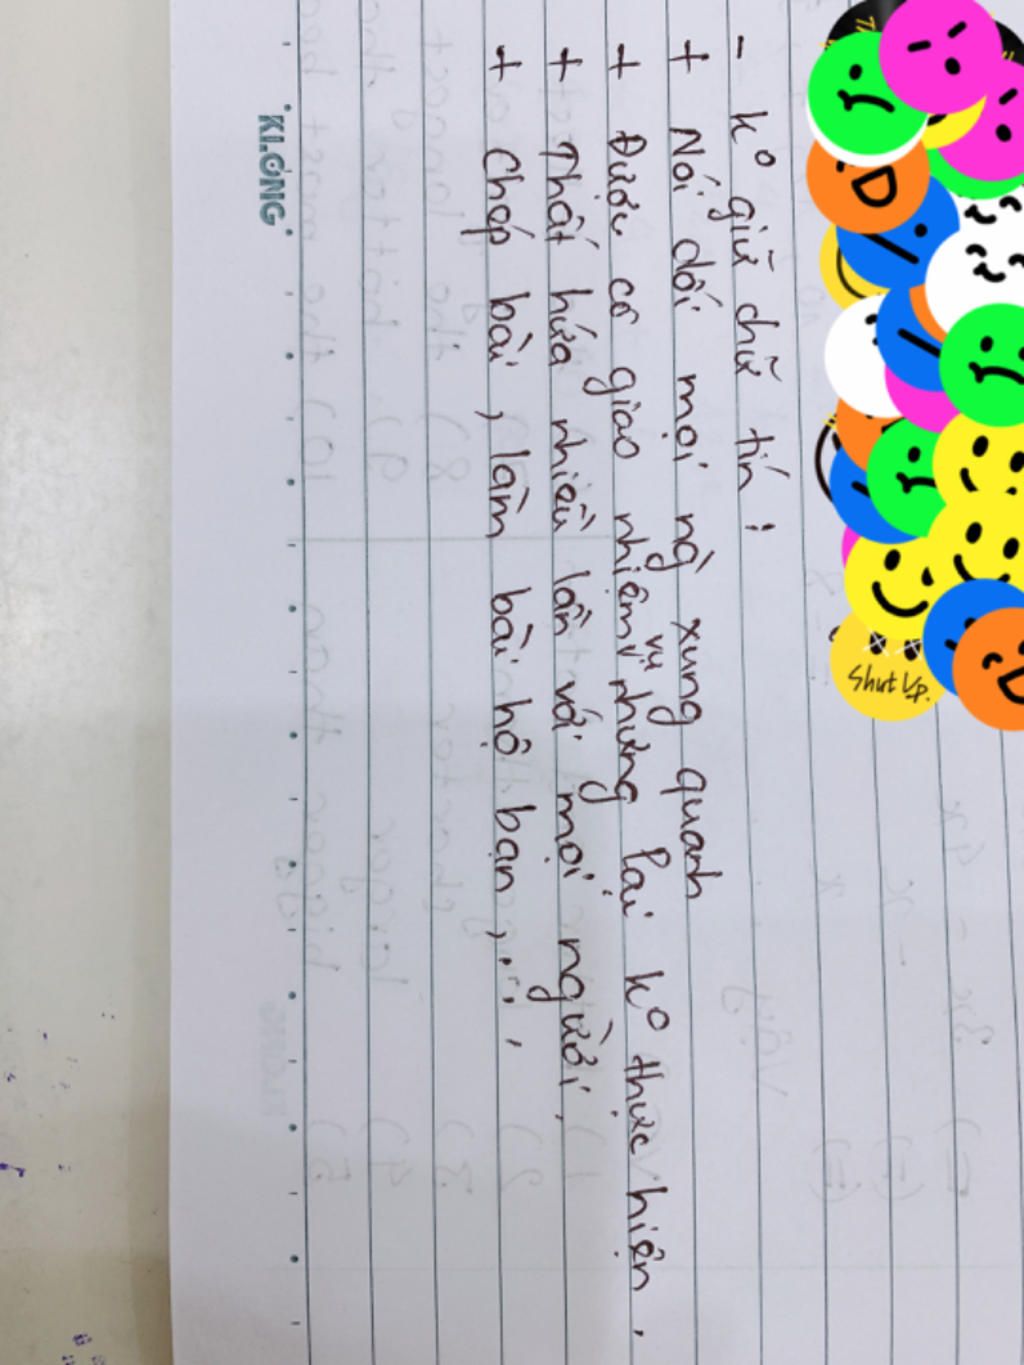 - k° giữ chữ tín :
+ Nói dối mọi ng xung quanh
+ Được cô giao nhiệm vụ nhưng lại k° thực hiện,
+ Thất hứa nhiều lần với mọi người,
+ Chép bài, làm bài hộ bạn,...
KLONG
Shut Up.